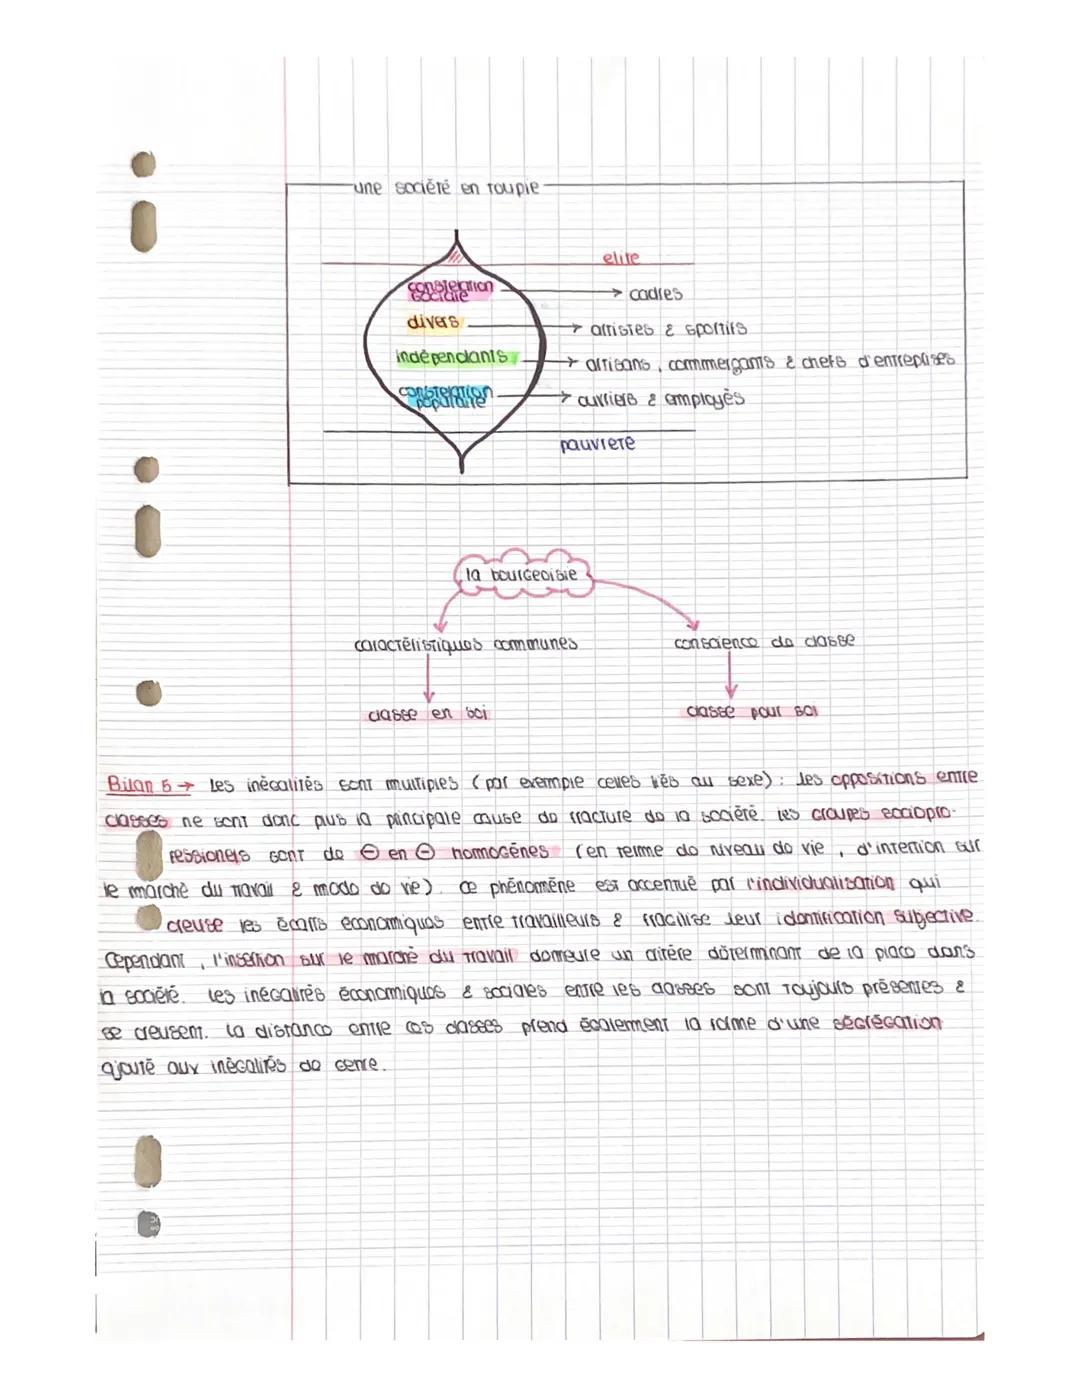 une société en toupie
elite
constelation
sociale
→ cadres
divers
→ artistes & sportifs
indépendants
→ artisans, commerçants & chefs d'entreprises
constelation
populaire
→ ouvriers & employés
pauvreté
la bourgeoisie
caractéristiques communes
conscience de classe
classe en soi
classe pour soi
Bilan 5 → Les inégalités sont multiples (par exemple celles liés au sexe) : les oppositions entre
classes ne sont donc plus la principale cause de fracture de la société. Les groupes sociopro-
fessionels sont de ⊖ en ⊖ homogènes (en terme de niveau de vie, d'intention sur
le marché du travail & mode de vie). Ce phénomène est accentué par l'individualisation qui
creuse les écarts économiques entre travailleurs & fragilise leur identification subjective.
Cependant, l'insertion sur le marché du travail demeure un critère déterminant de la place dans
la société. Les inégalités économiques & sociales entre les classes sont toujours présentes &
se creusent. La distance entre ces classes prend également la forme d'une ségrégation
ajouté aux inégalités de genre.